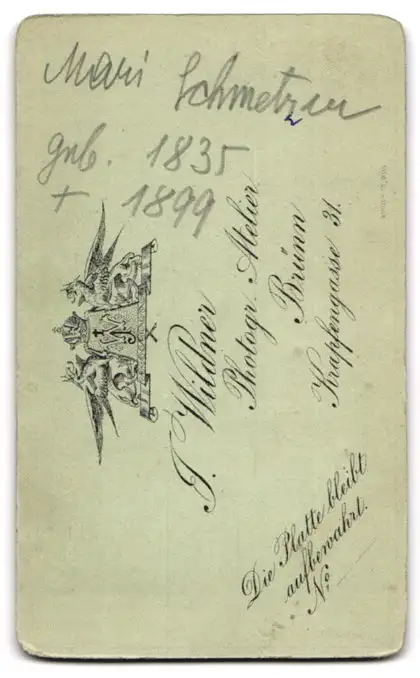 Mari Schmetzer
geb. 1835
+ 1899
J. Wildner
Photogr. Atelier
Brünn
Krapfengasse 31.
Die Platte bleibt
aufbewahrt.
No